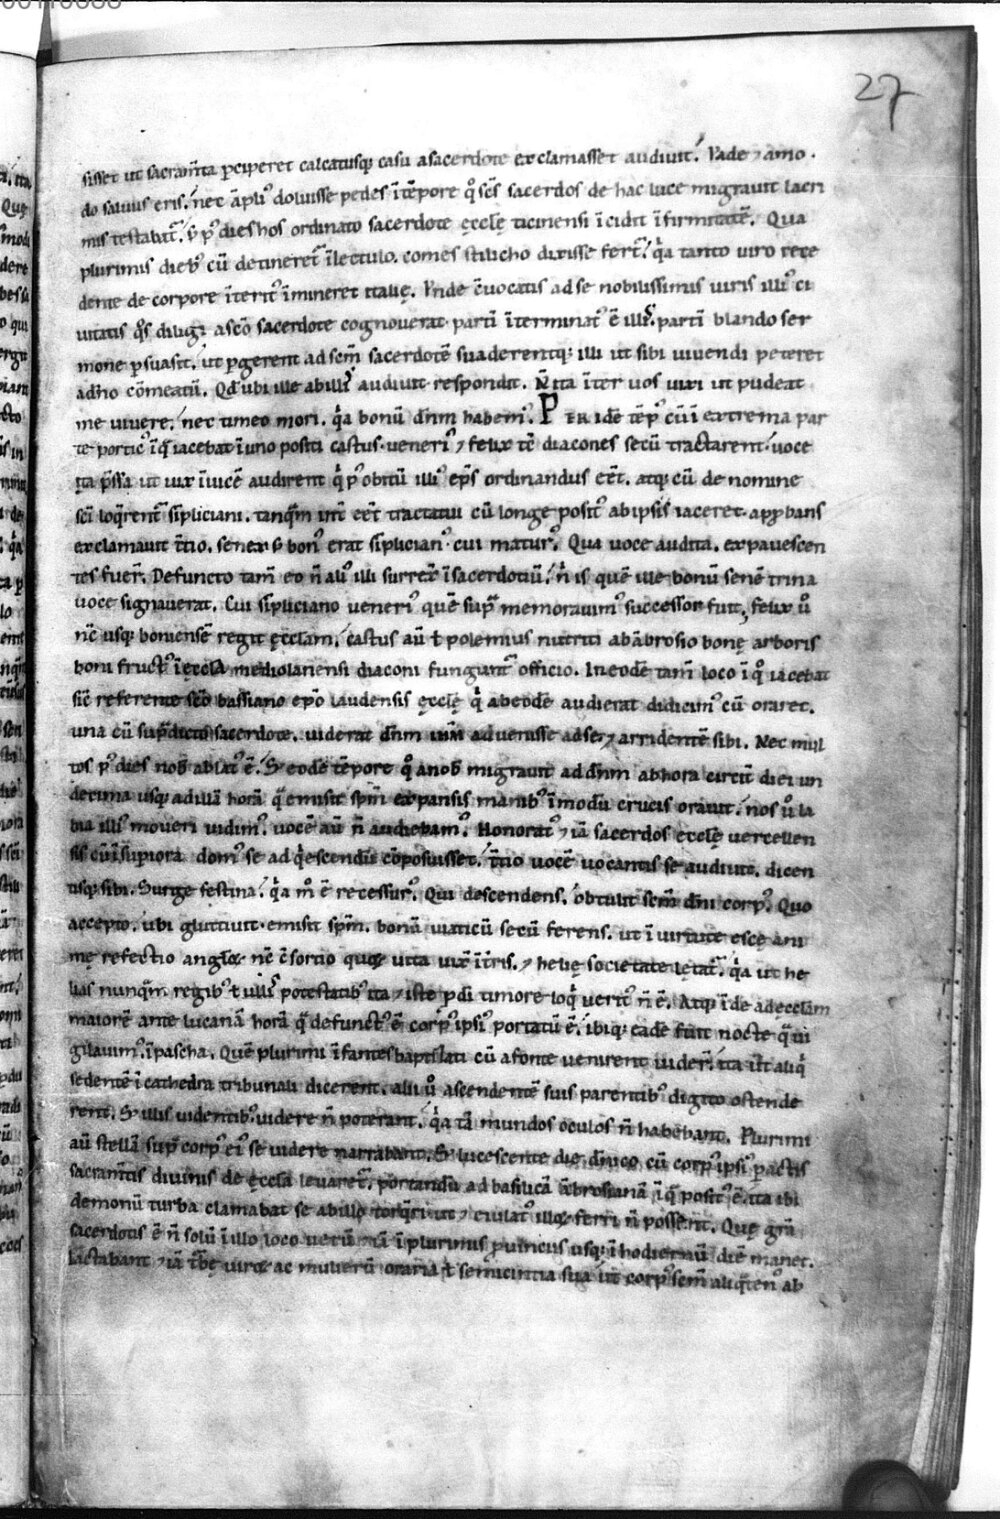 27
sisset ut sacram̄ta ꝑciperet calcatusq; casu a sacerdote exclamasset audiuit. Vade ⁊ amo.
do saluus eris. nec āpliꝰ doluisse pedes ī tēpore qͦ scs̄ sacerdos de hac luce migrauit lacri
mis testabat᷑. s; pꝰ dies hos ordinato sacerdote ęcclę ticinensi īcidit īfirmitatē. Qua
plurimis diebꝰ cū detineret᷑ ī lectulo. comes stilicho dixisse fert᷑. qͥa tanto uiro rece
dente de corpore īteritꝰ īmineret italię. Vnde c̄uocatis ad se nobilissimis uiris illiꝰ ci
uitatis qͦs diligi a scō sacerdote cognouerat. partī īterminatꝰ ē illis. partī blando ser
mone ꝑsuasit. ut ꝑgerent ad scm̄ sacerdotē suaderentq; illi ut sibi uiuendi peteret
a dn̄o cōmeatū. Qd̄ ubi ille ab illis audiuit respondit. N̄ ita īter uos uixi ut pudeat
me uiuere. nec timeo mori. qͥa bonū dn̄m habemꝰ. PER idē tēpꝰ cū ī extrema par
te porticꝰ ī q̄ iacebat ī uno positi castus. ueneriꝰ ⁊ felix tē diacones secū tractarent. uoce
ita p̄ssa ut uix īuicē audirent qͥ pꝰ obitū illiꝰ ep̄s ordinandus eēt. atq; cū de nomine
sc̄i loq̄rent᷑ sīpliciani. tanqͣm int̄ eēt tractatui cū longe positꝰ ab ipsis iaceret. app̱bans
exclamauit t̄tio. senex s; bonꝰ erat sīplicianꝰ cui maturꝰ. Qua uoce audita. expauescen
tes fuer̄. Defuncto tam̄ eo n̄ aliꝰ illi surrex̄ ī sacerdotiū. n̄ is quē ille bonū senē trina
uoce signauerat. Cui sīpliciano ueneriꝰ quē supͣ memorauimꝰ successor fuit, felix uͦ
nc̄ usq; boniensē regit ęcclam. castus aū ł polemius nutriti ab ābrosio bonę arboris
boni fructꝰ ī ęccla mediolanensi diaconi fungunt᷑ officio. In eodē tam̄ loco ī qͦ iacebat
sic̄ referente sc̄o bassiano ep̄o laudensis ęcclę qͥ ab eodē audierat didicimꝰ cū oraret.
una cū supͣdictis sacerdote. uiderat dn̄m iħm aduenisse ad se ⁊ arridentē sibi. Nec mul
tos pꝰ dies nob̄ ablatꝰ ē. S; eodē tēpore qͦ a nob̄ migrauit ad dn̄m ab hora circit̄ diei un
decima usq; ad illā horā q̄ emisit spm̄ expansis manibꝰ ī modū crucis orauit. nos uͦ la
bia illiꝰ moueri uidimꝰ. uocē aū n̄ audiebamꝰ. Honoratꝰ ⁊iā sacerdos ęcclę uercellen
sis cū ī supiora domꝰ se ad qͥescendū cōposuisset. t̄tio uocē uocantis se audiuit. dicen
tisq; sibi. Surge festina. qͥa mͦ ē recessurꝰ. Qui descendens. obtulit scm̄ dn̄i corpꝰ. Quo
accepto. ubi gluttiuit. emisit spm̄. bonū uiaticū secū ferens. ut ī uirtute escę ani
mę refectio angloꝝ nc̄ c̄sortio quoꝝ uita uix̄ ī t̄ris. ⁊ helię societate lętat᷑. qͥa ut he
lias nunqͣm regibꝰ ł ullis potestatibꝰ ita ⁊ iste ꝓ dī timore loqͥ ueritꝰ n̄ ē. Atq; īde ad ęcclam
maiorē ante lucanā horā qͣ defunctꝰ ē corpꝰ ipsiꝰ portatū ē. ibiq; eadē fuit nocte qͣ ui
gilauimꝰ. ī pascha. Quē plurimi īfantes baptizati cū a fonte uenirent uider̄. ita ut aliqͥ
sedentē ī cathedra tribunali dicerent. alii uͦ ascendentē suis parentibꝰ digito ostende
rent. S; illis uidentibꝰ uidere n̄ poterant. qͥa tā mundos oculos n̄ habebant. Plurimi
aū stellā supͣ corpꝰ eiꝰ se uidere narrabant. S; lucescente die dn̄ico cū corpꝰ ipsiꝰ ꝑactis
sacram̄tis diuinis de ęccla leuaret᷑. portandū ad basilicā ābrosianā ī qͣ positꝰ ē. ita ibi
demonū turba clamabat se ab illo torqͥri ut ⁊ eiulatꝰ illoꝝ ferri n̄ possent. Quę gr̄a
sacerdotis ē n̄ solū ī illo loco uerū ⁊iā ī plurimis ꝓuinciis usq; ī hodiernū diē manet.
Iactabant ⁊iā t̄bę uiroꝝ ac mulierū oraria ł semicintia sua ut corpꝰ scm̄ aliqͣtenꝰ ab